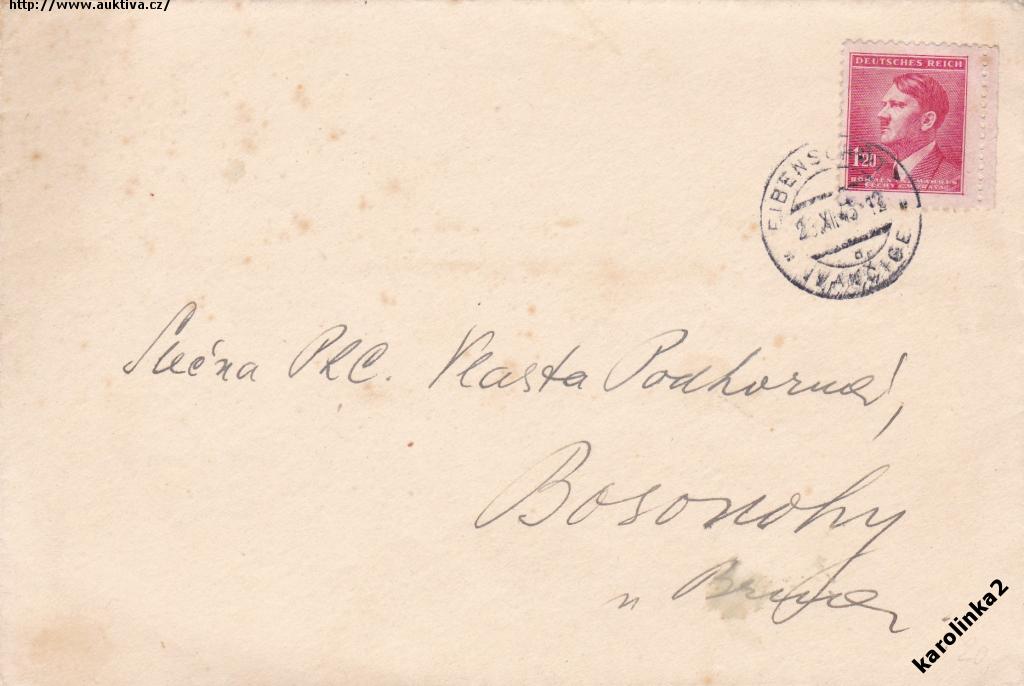 http://www.auktiva.cz/
DEUTSCHES REICH
1.20
BÖHMEN U. MÄHREN
ČECHY A MORAVA
EIBENSCHITZ
XI 43-12
IVANČICE
Slečna PhC. Vlasta Podhorná,
Bosonohy
u Brna
karolinka2